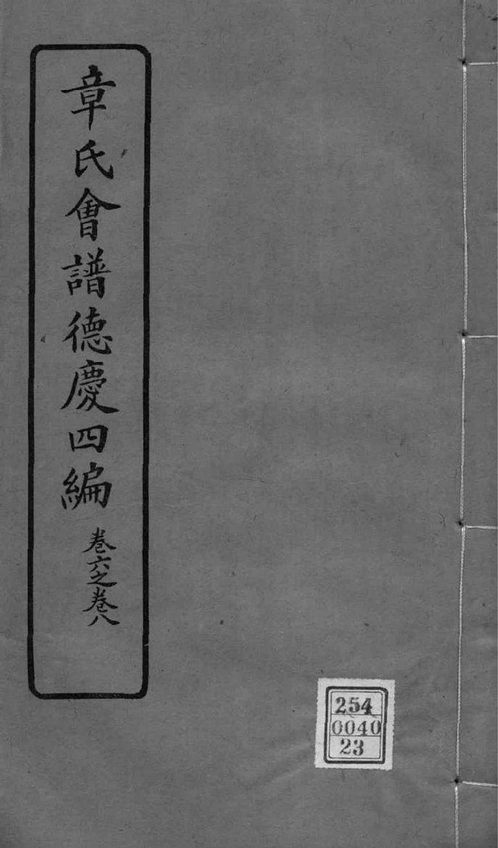 章氏會譜德慶四編
卷六之卷八
254
0040
23